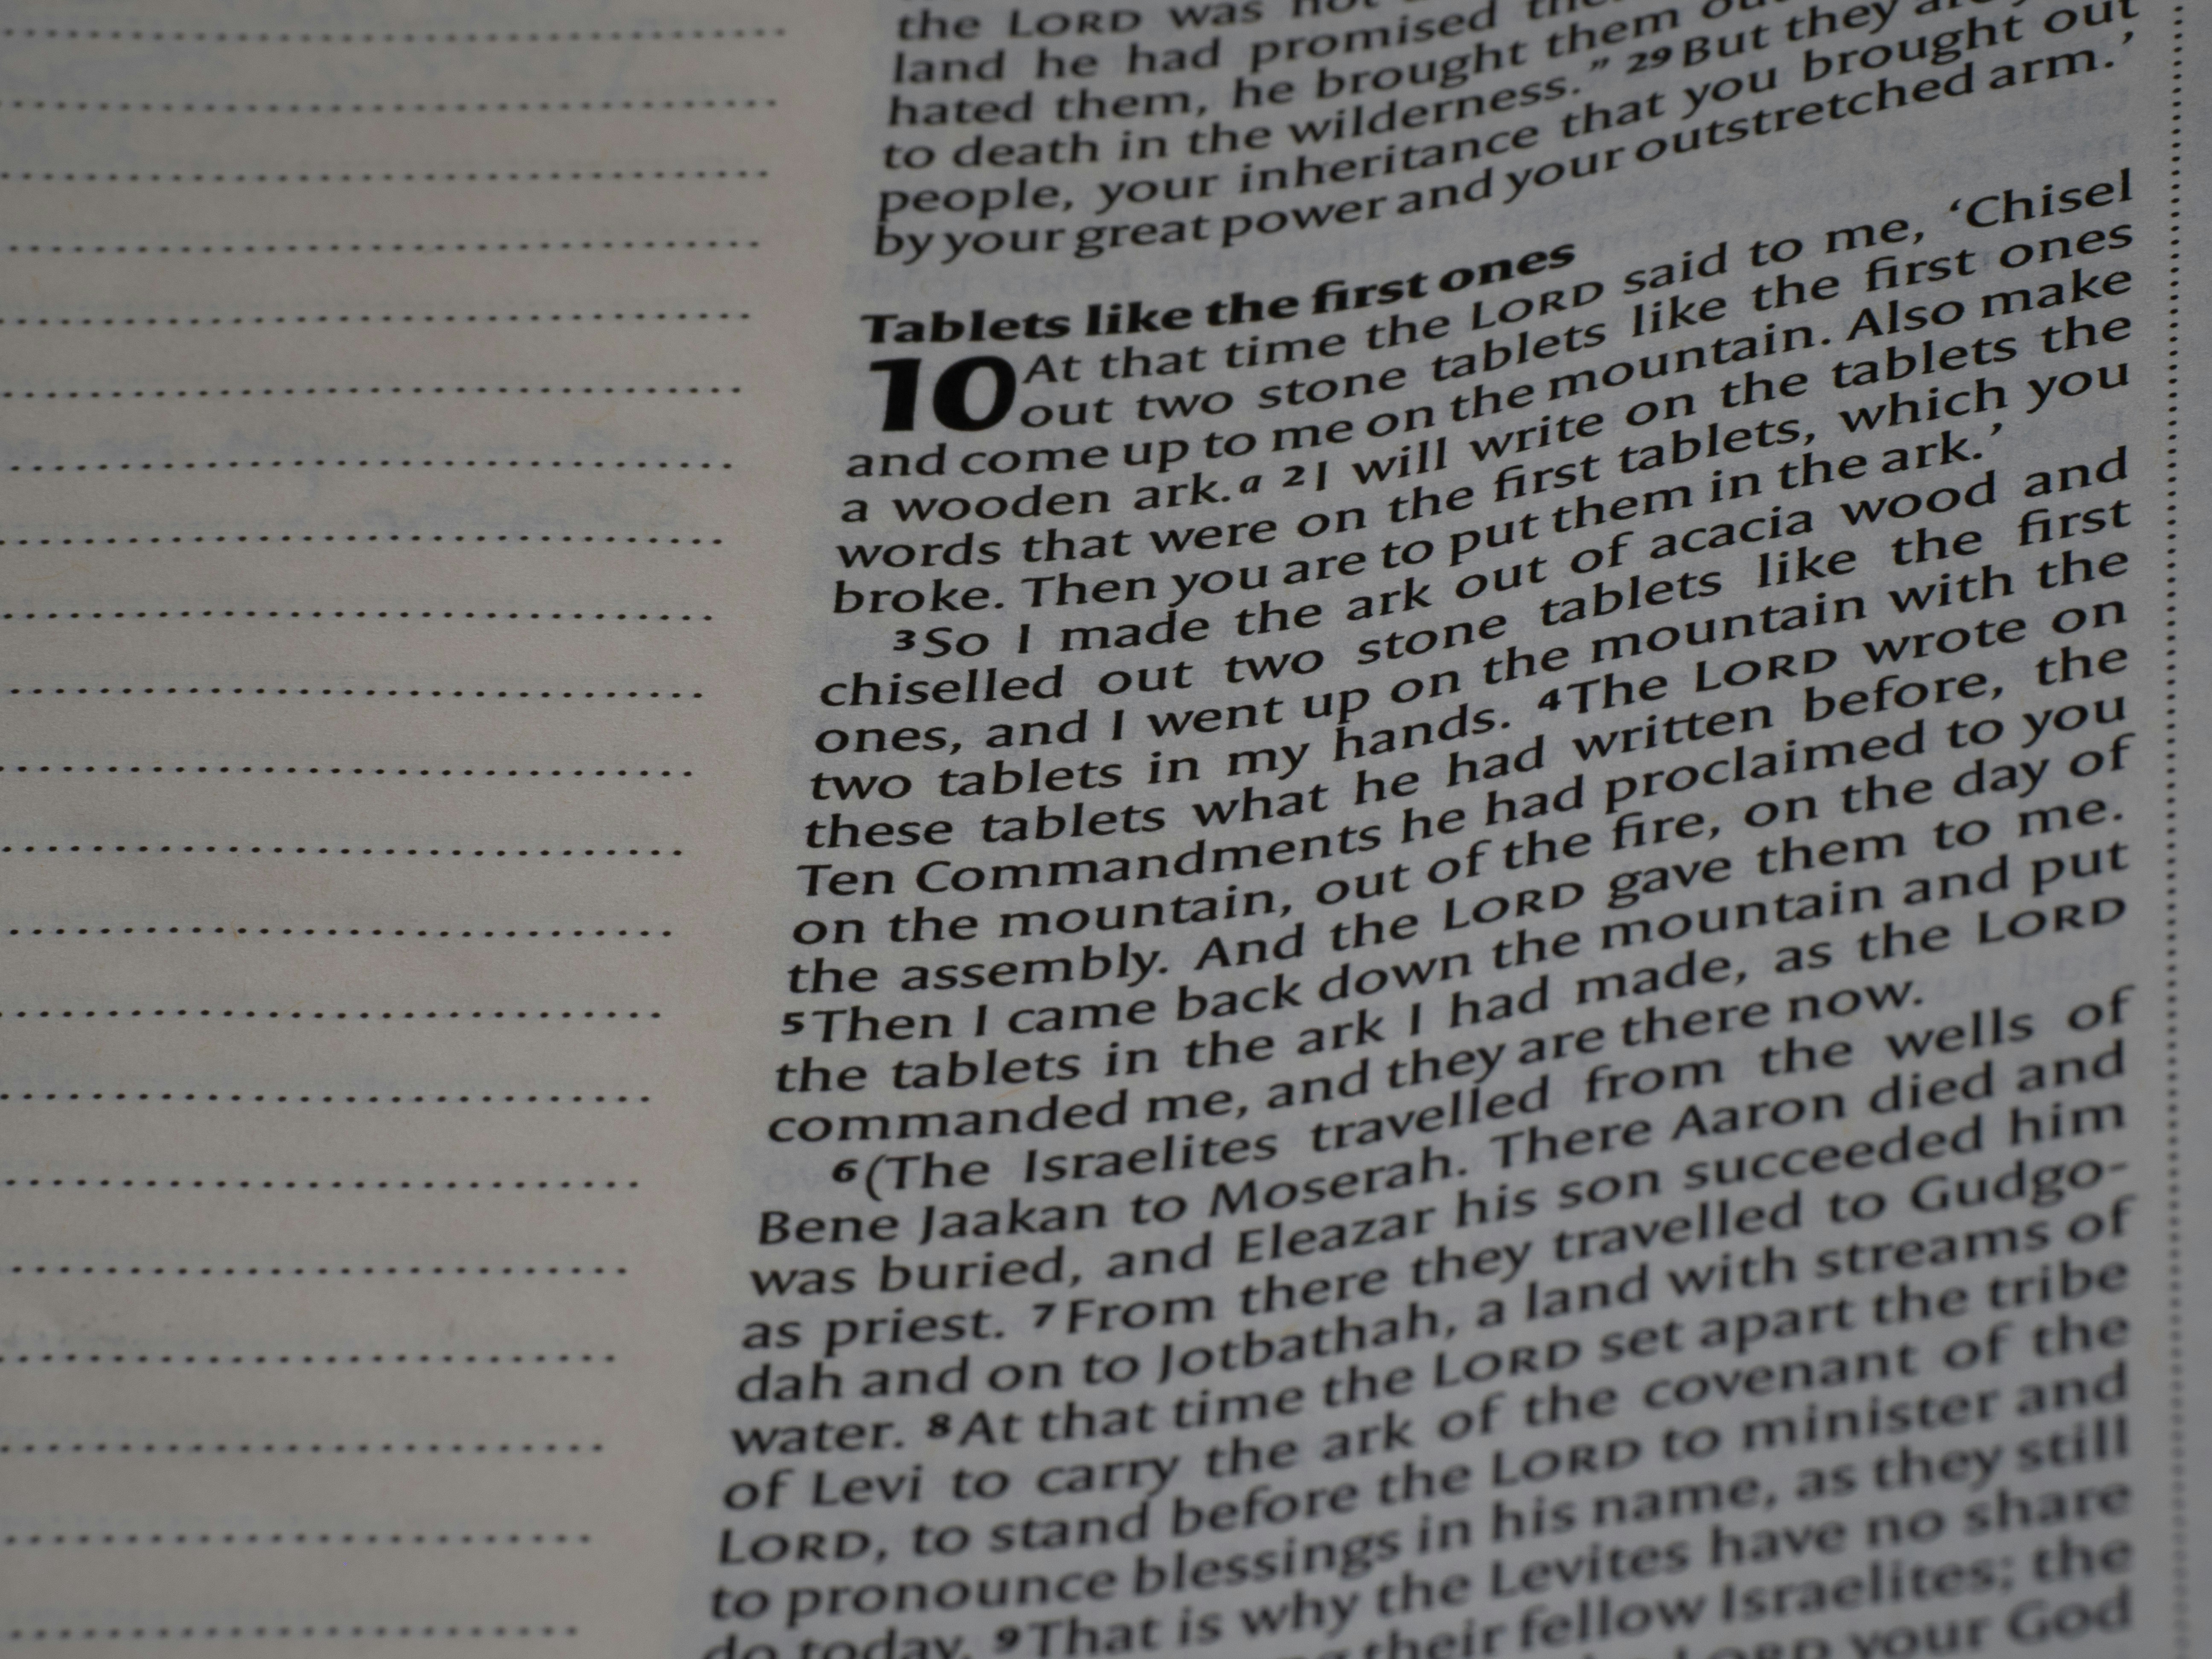 the LORD was not
land he had promised
hated them, he brought them
to death in the wilderness.” 29 But they
people, your inheritance that you brought out
by your great power and your outstretched arm.’
Tablets like the first ones
10 At that time the LORD said to me, ‘Chisel
out two stone tablets like the first ones
and come up to me on the mountain. Also make
a wooden ark.a 2 I will write on the tablets the
words that were on the first tablets, which you
broke. Then you are to put them in the ark.’
3 So I made the ark out of acacia wood and
chiselled out two stone tablets like the first
ones, and I went up on the mountain with the
two tablets in my hands. 4 The LORD wrote on
these tablets what he had written before, the
Ten Commandments he had proclaimed to you
on the mountain, out of the fire, on the day of
the assembly. And the LORD gave them to me.
5 Then I came back down the mountain and put
the tablets in the ark I had made, as the LORD
commanded me, and they are there now.
6 (The Israelites travelled from the wells of
Bene Jaakan to Moserah. There Aaron died and
was buried, and Eleazar his son succeeded him
as priest. 7 From there they travelled to Gudgo-
dah and on to Jotbathah, a land with streams of
water. 8 At that time the LORD set apart the tribe
of Levi to carry the ark of the covenant of the
LORD, to stand before the LORD to minister and
to pronounce blessings in his name, as they still
do today. 9 That is why the Levites have no share
their fellow Israelites; the
LORD your God